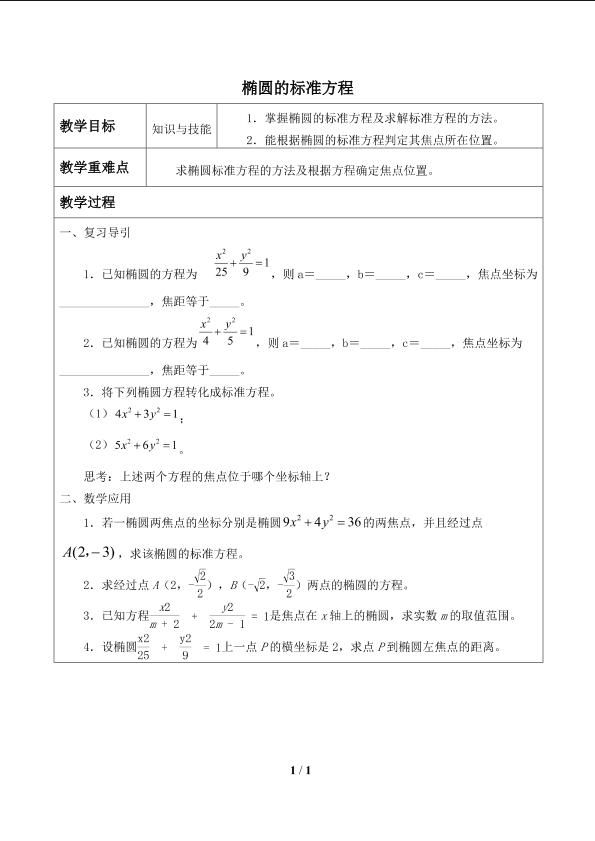 椭圆的标准方程
教学目标
知识与技能
1．掌握椭圆的标准方程及求解标准方程的方法。
2．能根据椭圆的标准方程判定其焦点所在位置。
教学重难点
求椭圆标准方程的方法及根据方程确定焦点位置。
教学过程
一、复习导引
1．已知椭圆的方程为 x²/25 + y²/9 = 1，则 a＝_____，b＝_____，c＝_____，焦点坐标为
_______________，焦距等于_____。
2．已知椭圆的方程为 x²/4 + y²/5 = 1，则 a＝_____，b＝_____，c＝_____，焦点坐标为
_______________，焦距等于_____。
3．将下列椭圆方程转化成标准方程。
（1）4x² + 3y² = 1；
（2）5x² + 6y² = 1。
思考：上述两个方程的焦点位于哪个坐标轴上？
二、数学应用
1．若一椭圆两焦点的坐标分别是椭圆 9x² + 4y² = 36 的两焦点，并且经过点
A(2，− 3)，求该椭圆的标准方程。
2．求经过点 A（2，-√2/2），B（-√2，-√3/2）两点的椭圆的方程。
3．已知方程 x2/m + 2 + y2/2m - 1 = 1是焦点在 x 轴上的椭圆，求实数 m 的取值范围。
4．设椭圆 x2/25 + y2/9 = 1上一点 P 的横坐标是 2，求点 P 到椭圆左焦点的距离。
1 / 1